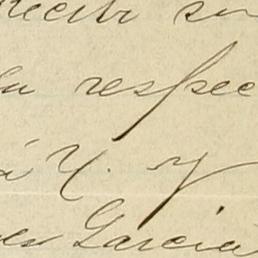 Recibi su
su respec
á V. y
es Garcia